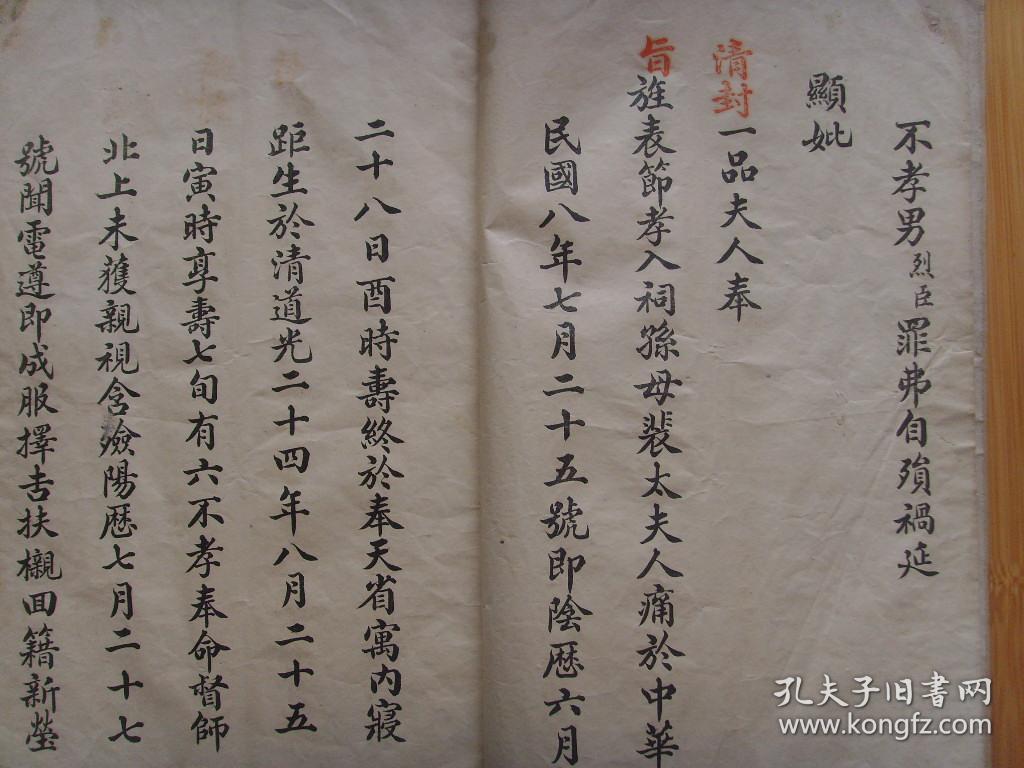 不孝男烈臣罪弗自殞禍延
顯妣
清封一品夫人奉
旨旌表節孝入祠孫母裴太夫人痛於中華
民國八年七月二十五號即陰歷六月
二十八日酉時壽終於奉天省寓內寢
距生於清道光二十四年八月二十五
日寅時享壽七旬有六不孝奉命督師
北上未獲親視含殮陽歷七月二十七
號聞電遵即成服擇吉扶櫬回籍新塋
孔夫子旧书网
www.kongfz.com